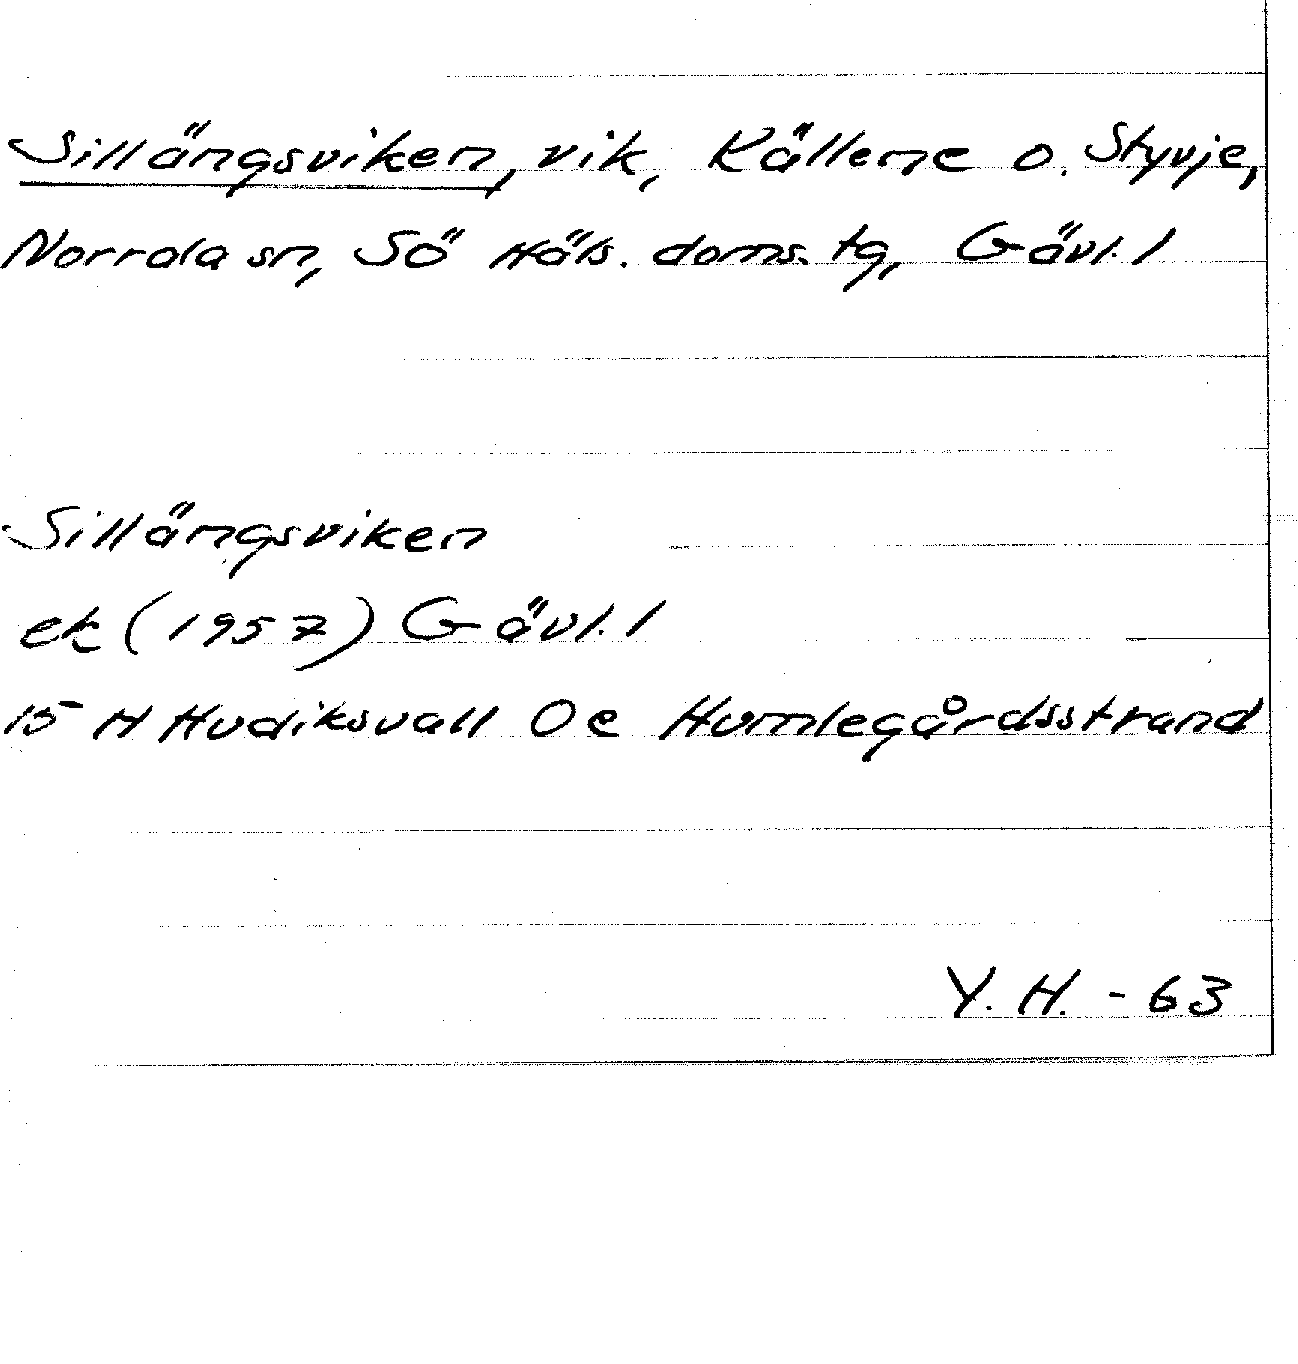 Sillängsviken, vik, Källene o. Styvje,
Norrala sn, Sö Häls. doms. tg, Gävl. l
Sillängsviken
ek (1957) Gävl. l
15 H Hudiksvall 0 e Humlegårdsstrand
Y. H. - 63